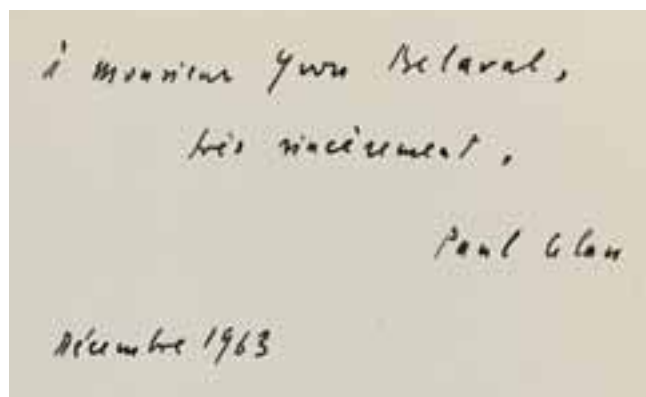 à monsieur Yvon Belaval,
très sincèrement,
Paul Celan
Décembre 1963